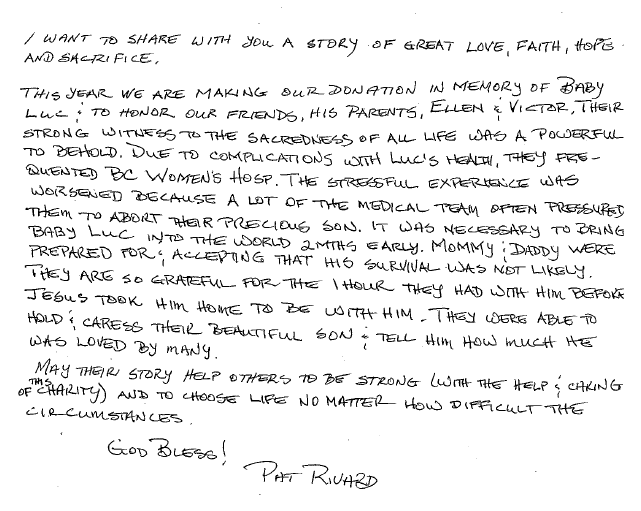 I WANT TO SHARE WITH YOU A STORY OF GREAT LOVE, FAITH, HOPE
AND SACRIFICE.
THIS YEAR WE ARE MAKING OUR DONATION IN MEMORY OF BABY
LUC & TO HONOR OUR FRIENDS, HIS PARENTS, ELLEN & VICTOR. THEIR
STRONG WITNESS TO THE SACREDNESS OF ALL LIFE WAS A POWERFUL
TO BEHOLD. DUE TO COMPLICATIONS WITH LUC'S HEALTH, THEY FRE-
QUENTED BC WOMEN'S HOSP. THE STRESSFUL EXPERIENCE WAS
WORSENED BECAUSE A LOT OF THE MEDICAL TEAM OFTEN PRESSURED
THEM TO ABORT THEIR PRECIOUS SON. IT WAS NECESSARY TO BRING
BABY LUC INTO THE WORLD 2 MTHS EARLY. MOMMY & DADDY WERE
PREPARED FOR & ACCEPTING THAT HIS SURVIVAL WAS NOT LIKELY.
THEY ARE SO GRATEFUL FOR THE 1 HOUR THEY HAD WITH HIM BEFORE
JESUS TOOK HIM HOME TO BE WITH HIM. THEY WERE ABLE TO
HOLD & CARESS THEIR BEAUTIFUL SON & TELL HIM HOW MUCH HE
WAS LOVED BY MANY.
MAY THEIR STORY HELP OTHERS TO BE STRONG (WITH THE HELP & CARING
OF THIS CHARITY) AND TO CHOOSE LIFE NO MATTER HOW DIFFICULT THE
CIRCUMSTANCES.
GOD BLESS!
PAT RIVARD